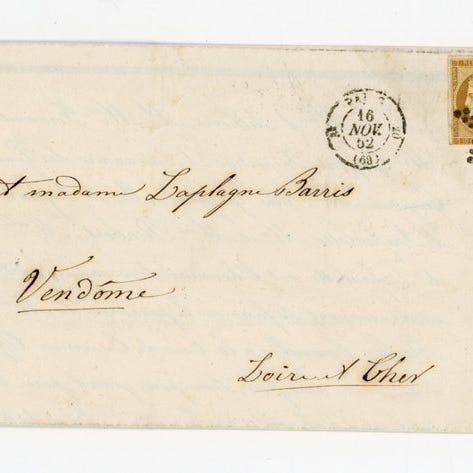 PARIS
16
NOV.
52
(60)
et madame Laplagne Barris
Vendôme
Loir et Cher